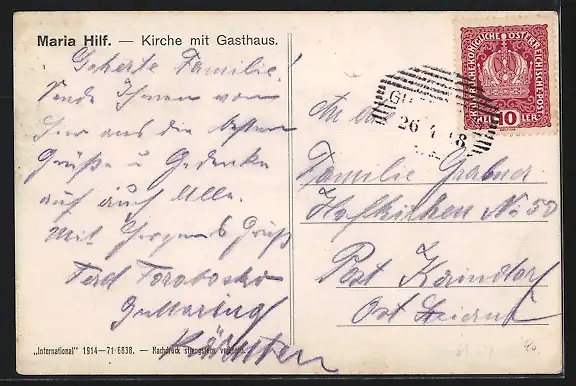 Maria Hilf. — Kirche mit Gasthaus.
Geherte Familie!
Sende Ihnen vom
hier aus die besten
Grüße u Gedenke
auf auch Alle.
Mit Gruß
Ferd
Guttaring
Kärnten
„International" 1914—71 6838. — Nachdruck strengstens
KAISERLICH KÖNIGLICHE ÖSTERREICHISCHE POST
HELLER 10
26
An die
Familie Grabner
Hofkirchen No 50
Post Kaindorf
Ost Steierm